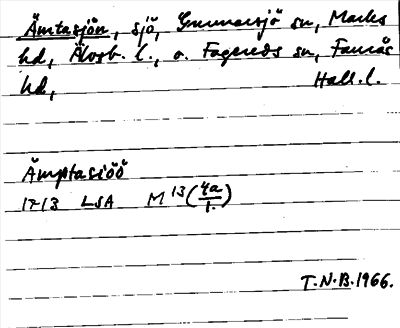 Ämtasjön, sjö, Gunnarsjö sn, Marks
hd, Älvsb. l., o. Fagereds sn, Faurås
hd, Hall. l.
Ämptasiöö
1713 LSA M 13 (4a/1.)
T.N.B. 1966.